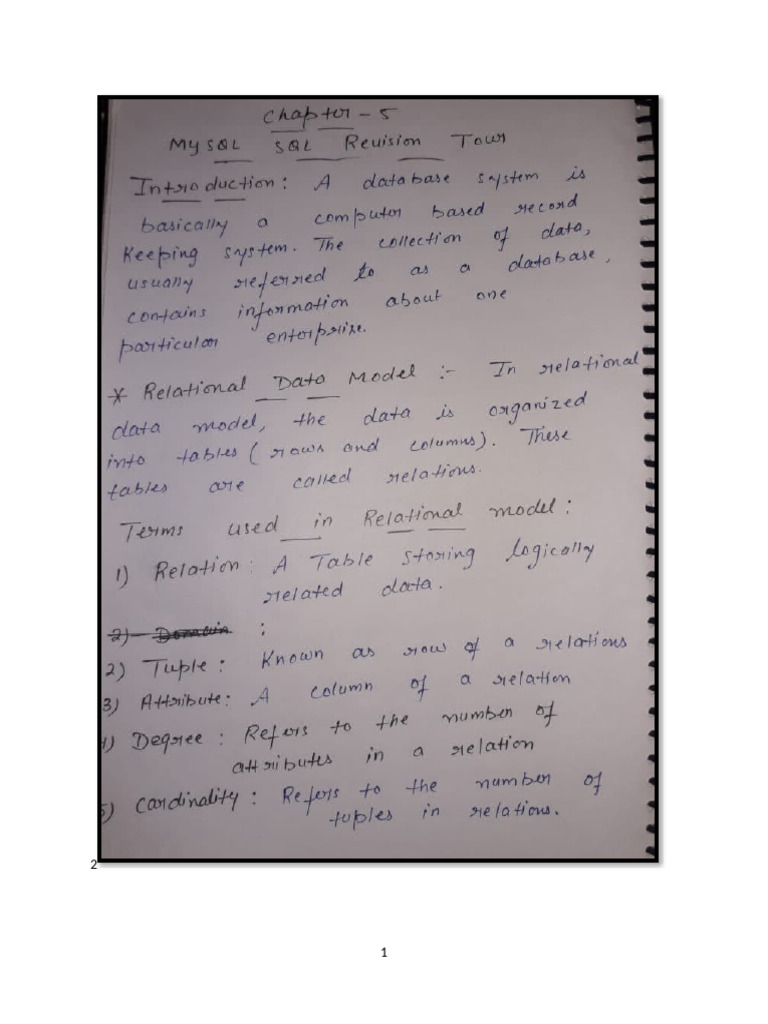 Chapter - 5
MySQL SQL Revision Tour
Introduction: A database system is
basically a computer based record
Keeping system. The collection of data,
usually referred to as a database,
contains information about one
particular enterprise.
* Relational Data Model :- In relational
data model, the data is organized
into tables (rows and columns). These
tables are called relations.
Terms used in Relational model:
1) Relation: A Table storing logically
related data.
2) Domain :
2) Tuple: Known as row of a relations
3) Attribute: A column of a relation
4) Degree: Refers to the number of
attributes in a relation
5) Cardinality: Refers to the number of
tuples in relations.
2
1